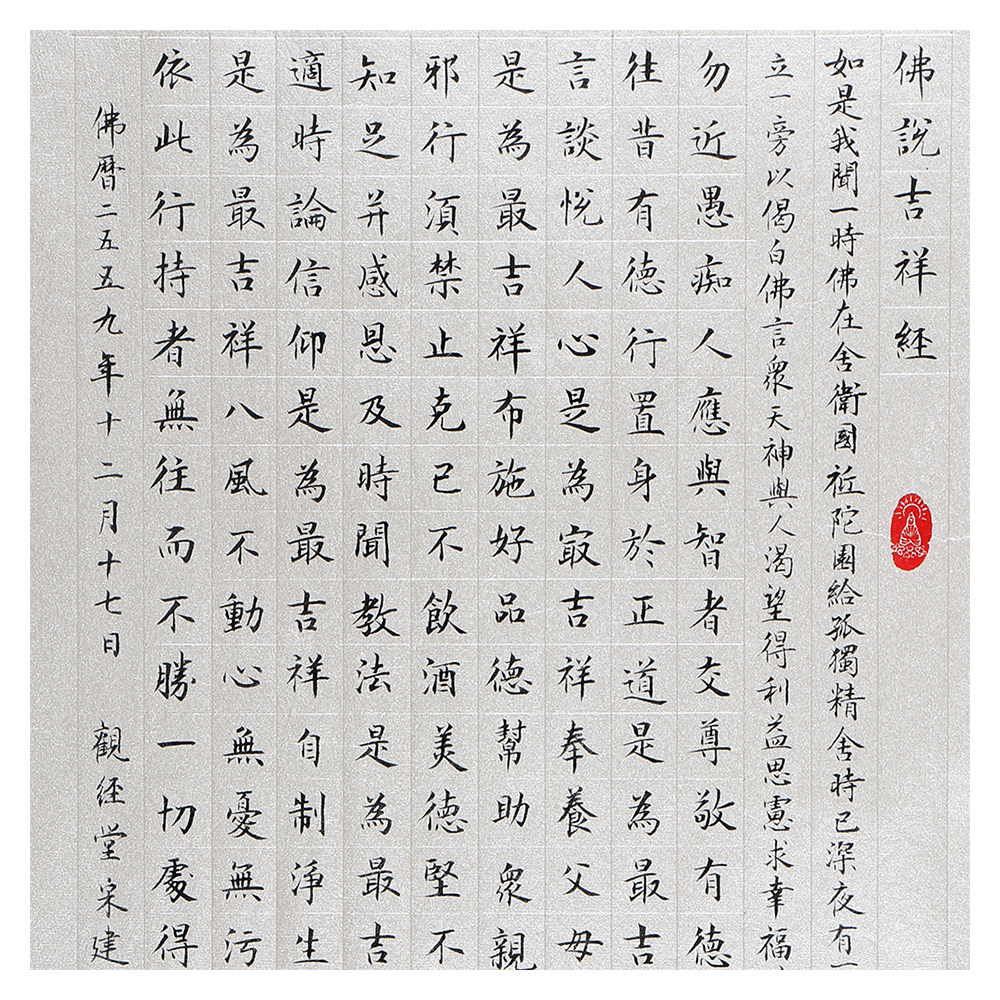 佛說吉祥経
如是我聞一時佛在舍衛國祇陀園給孤獨精舍時已深夜有一
立一旁以偈白佛言衆天神與人渴望得利益思慮求幸福
勿近愚痴人應與智者交尊敬有德
往昔有德行置身於正道是為最吉
言談悅人心是為㝡吉祥奉養父母
是為最吉祥布施好品德幫助衆親
邪行須禁止克己不飲酒美德堅不
知足并感恩及時聞教法是為最吉
適時論信仰是為最吉祥自制淨生
是為最吉祥八風不動心無憂無污
依此行持者無往而不勝一切處得
佛曆二五五九年十二月十七日 觀経堂宋建